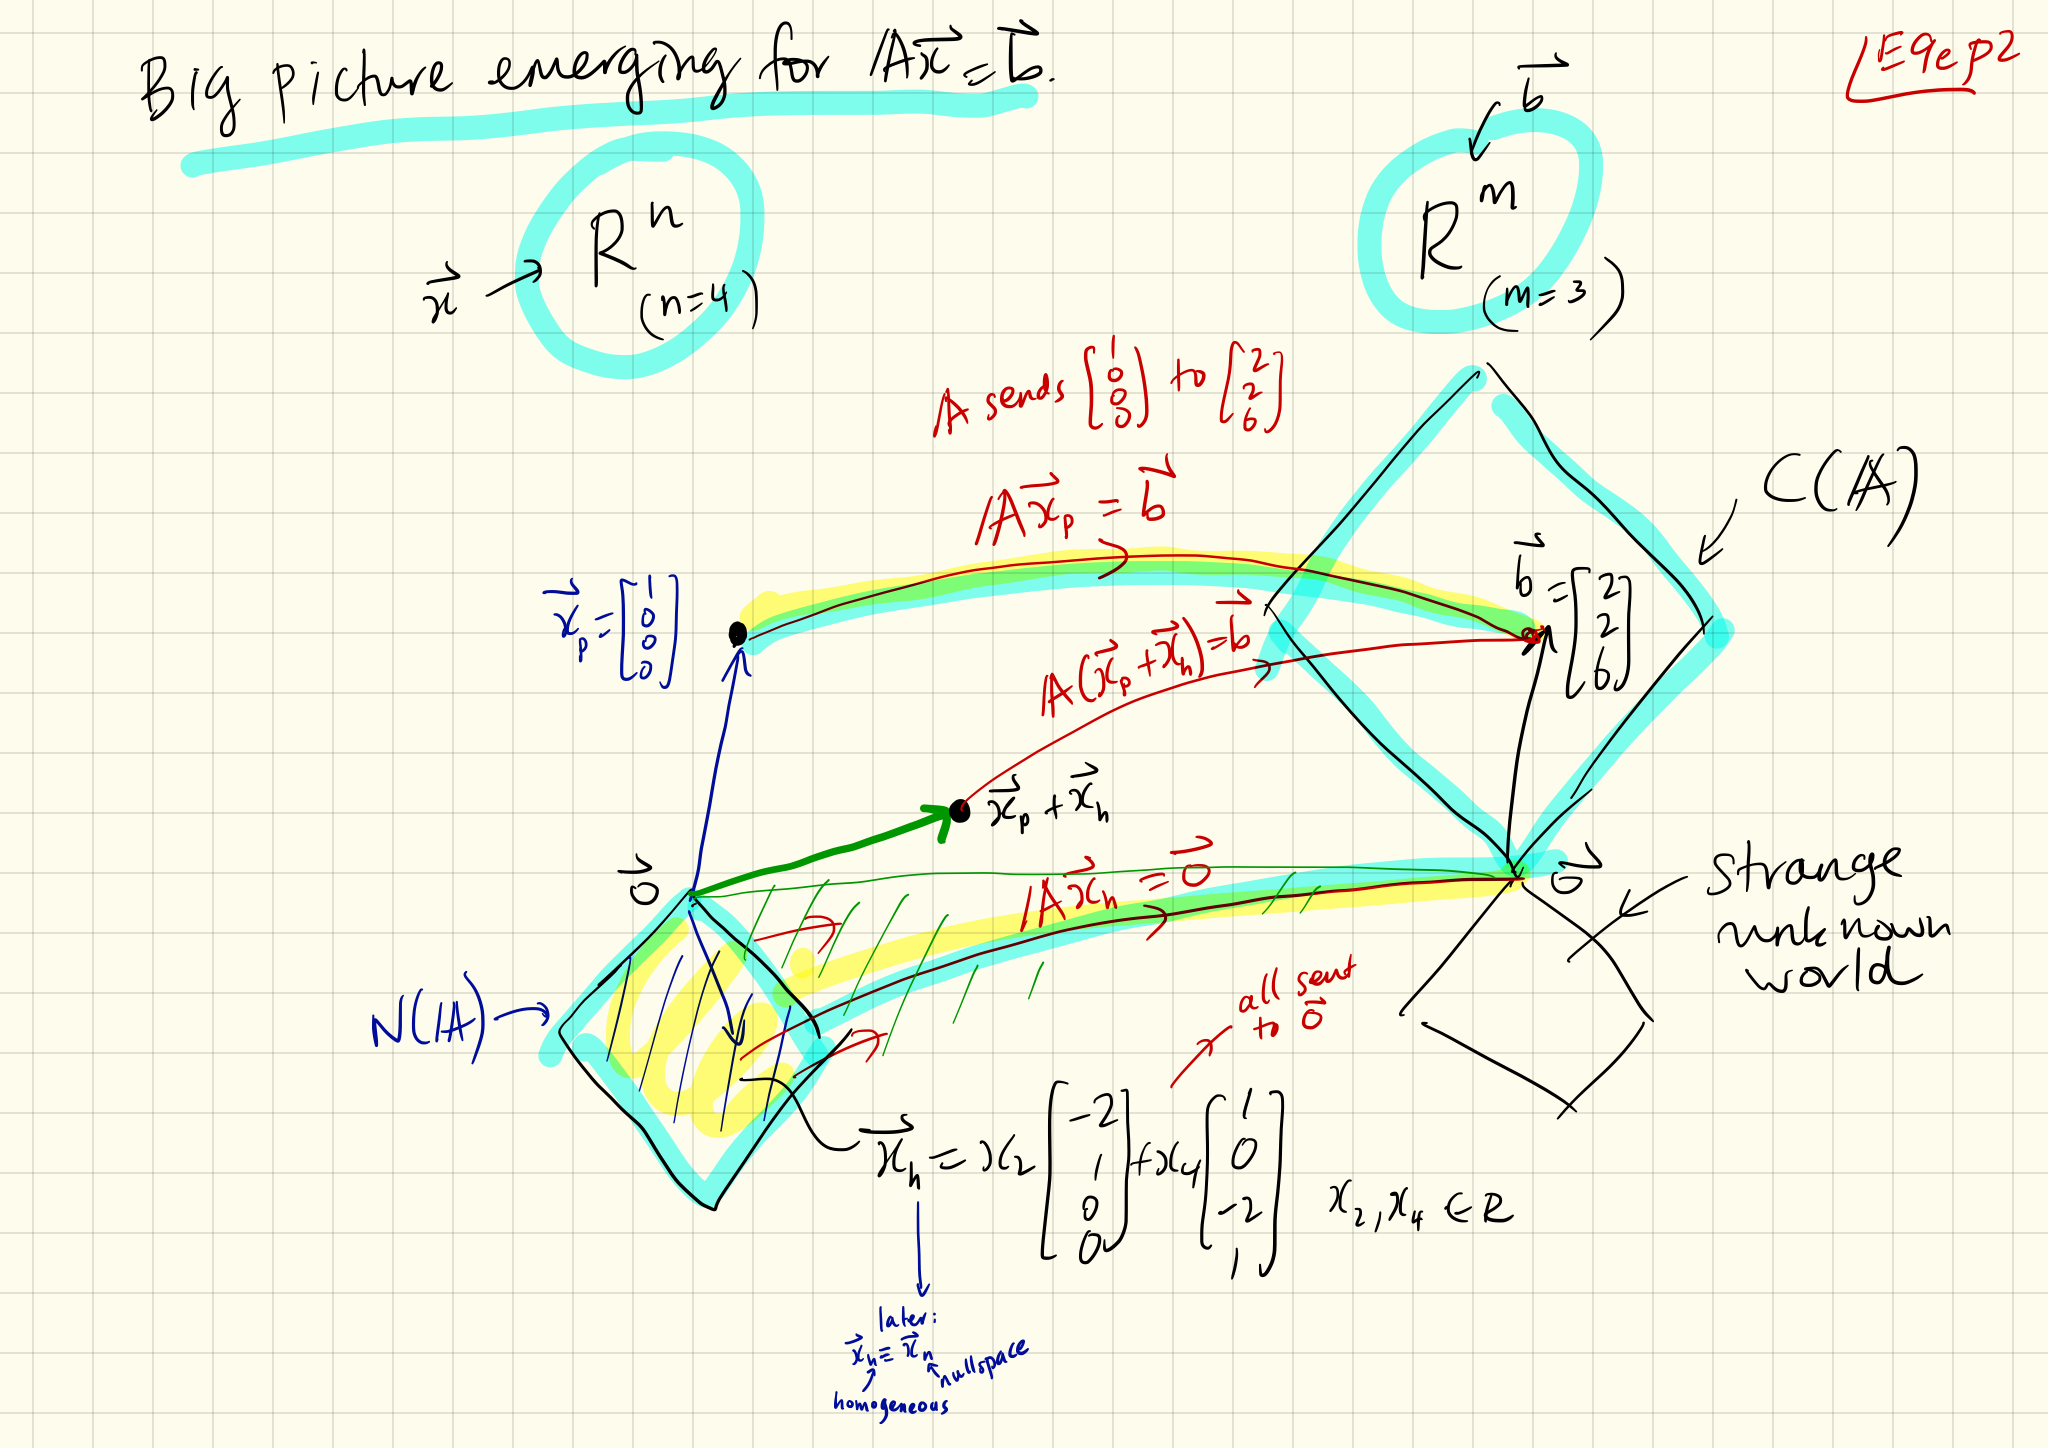 Big picture emerging for A𝑥⃗ = b⃗.
E9ep2
x⃗ → Rⁿ (n=4)
b⃗
Rᵐ (m=3)
A sends [1 0 0 0] to [2 2 6]
Ax⃗ₚ = b⃗
C(A)
x⃗ₚ = [1 0 0 0]
b⃗ = [2 2 6]
A(x⃗ₚ + x⃗ₕ) = b⃗
x⃗ₚ + x⃗ₕ
0⃗
Ax⃗ₕ = 0⃗
0⃗
strange
unknown
world
N(A)
all sent
to 0⃗
x⃗ₕ = x₂ [-2 1 0 0] + x₄ [1 0 -2 1] x₂, x₄ ∈ R
later:
x⃗ₕ ≡ x⃗ₙ
nullspace
homogeneous